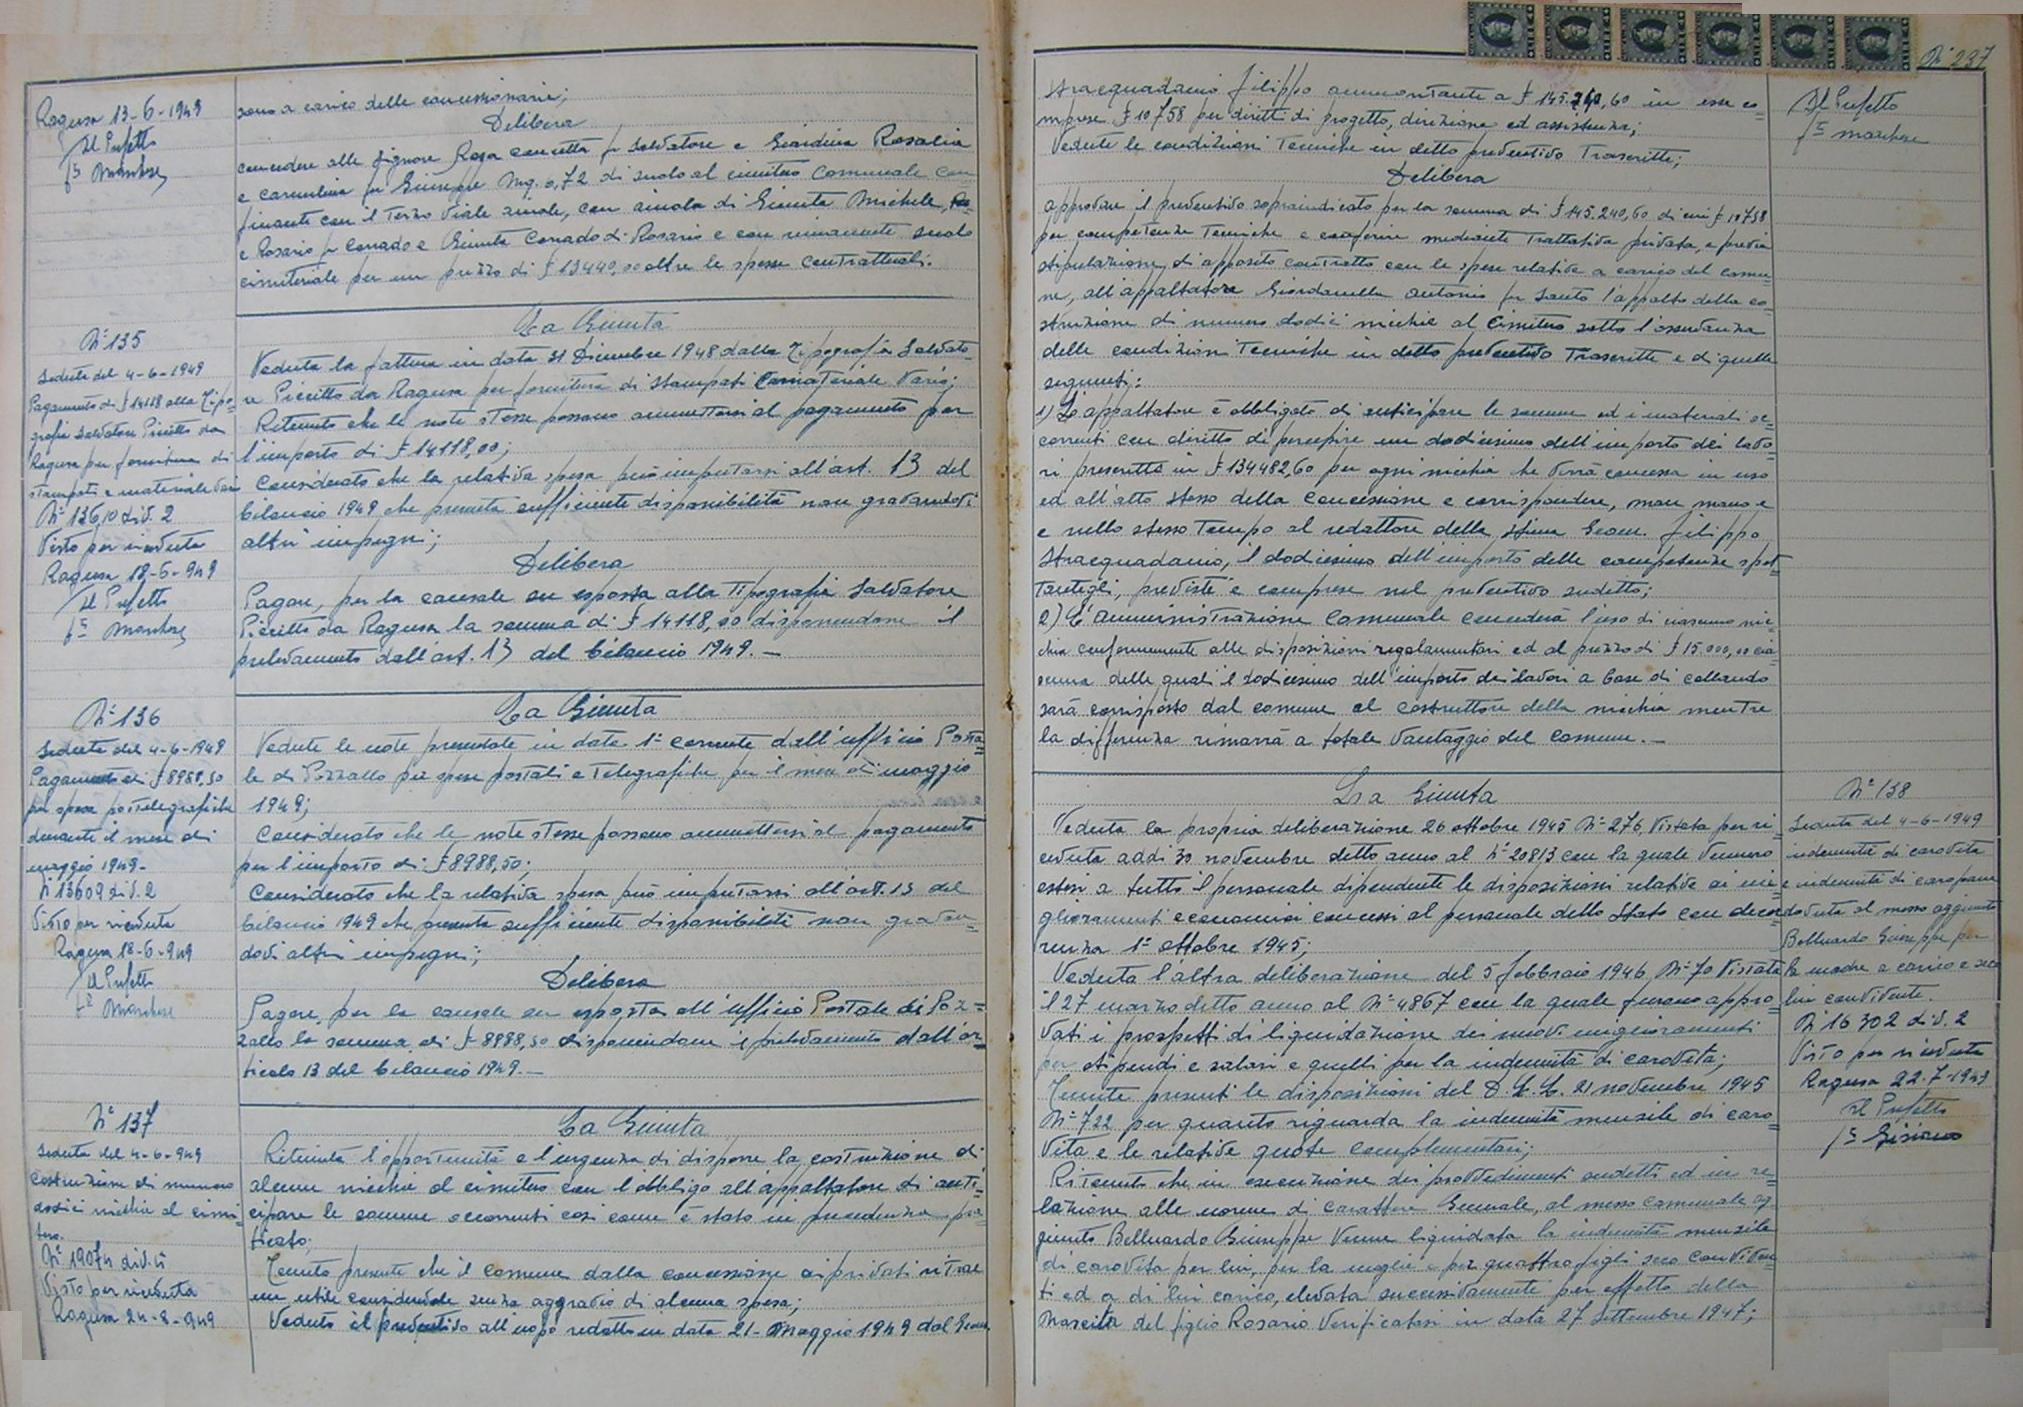 Ragusa 13-6-1949
Il Prefetto
fto Marchese
sono a carico delle concessionarie;
Delibera
concedere alle signore Roga Concetta fu Salvatore e Giardina Rosalia
e Carmelina fu Giuseppe Mq. 0,72 di suolo al cimitero Comunale con-
finante con il Terzo Viale ainole, con ainola di Giunta Michele,
e Rosario fu Corrado e Giunta Corrado di Rosario e con rimanente suolo
cimiteriale per un prezzo di £ 13440,00 oltre le spese contrattuali.
N° 135
Seduta del 4-6-1949
Pagamento di £ 14118 alla Tipo-
grafia Salvatore Piccitto da
Ragusa per fornitura di
stampati e materiale vari
N° 13610 div. 2
Visto per ricevuta
Ragusa 18-6-949
Il Prefetto
fto Marchese
La Giunta
Veduta la fattura in data 31 Dicembre 1948 dalla Tipografia Salvato-
re Piccitto da Ragusa per fornitura di stampati e materiale vario;
Ritenuto che le note stesse possano ammettersi al pagamento per
l'importo di £ 14118,00;
Considerato che la relativa spesa può imputarsi all'art. 13 del
bilancio 1949 che presenta sufficiente disponibilità non gravandovi
altri impegni;
Delibera
Pagare, per la causale su esposta alla Tipografia Salvatore
Piccitto da Ragusa la somma di £ 14118,00 disponendone il
prelevamento dall'art. 13 del bilancio 1949. —
N° 136
Seduta del 4-6-1949
Pagamento di £ 8988,50
per spese postelegrafiche
durante il mese di
maggio 1949-
N° 13609 div. 2
Visto per ricevuta
Ragusa 18-6-949
Il Prefetto
fto Marchese
La Giunta
Vedute le note presentate in data 1° corrente dall'ufficio Posta-
le di Pozzallo per spese postali e Telegrafiche per il mese di maggio
1949;
Considerato che le note stesse possano ammettersi al pagamento
per l'importo di £ 8988,50;
Considerato che la relativa spesa può imputarsi all'art. 13 del
bilancio 1949 che presenta sufficiente disponibilità non gravan-
dovi altri impegni;
Delibera
Pagare, per la causale su esposta all'ufficio Postale di Poz-
zallo la somma di £ 8988,50 disponendone il prelevamento dall'ar-
ticolo 13 del bilancio 1949. —
N° 137
Seduta del 4-6-949
Costruzione di numero
dodici nicchie al cimi-
tero.
N° 19074 div. 2
Visto per ricevuta
Ragusa 24-8-949
La Giunta
Ritenuta l'opportunità e l'urgenza di disporre la costruzione di
alcune nicchie al cimitero con l'obbligo all'appaltatore di anti-
cipare le somme occorrenti così come è stato in precedenza pra-
ticato;
Tenuto presente che il comune dalla concessione ai privati ritrae
un utile considerevole senza aggravio di alcuna spesa;
Veduto il preventivo all'uopo redatto in data 21- Maggio 1949 dal Geom.
N° 237
Stracquadanio Filippo ammontante a £ 145.240,60 in esse co-
mprese £ 10758 per diritti di progetto, direzione ed assistenza;
Vedute le condizioni Tecniche in detto preventivo Trascritte;
Delibera
approvare il preventivo sopraindicato per la somma di £ 145.240,60 di cui £ 10758
per competenze Tecniche e conferire mediante Trattativa privata, e previa
stipulazione di apposito contratto con le spese relative a carico del comu-
ne, all'appaltatore Giordanella Antonio fu Santo l'appalto della co-
struzione di numero dodici nicchie al Cimitero sotto l'osservanza
delle condizioni Tecniche in detto preventivo Trascritte e di quelle
seguenti:
1) L'appaltatore è obbligato di anticipare le somme ed i materiali oc-
correnti con diritto di percepire un dodicesimo dell'importo dei lavo-
ri prescritto in £ 134482,60 per ogni nicchia che verrà concessa in uso
ed all'atto stesso della concessione e corrispondere, man mano e
e nello stesso Tempo al redattore della stima Geom. Filippo
Stracquadanio, il dodicesimo dell'importo delle competenze spet-
tantegli, previste e comprese nel preventivo sudetto;
2) L'Amministrazione Comunale concederà l'uso di ciascuna nic-
chia conformemente alle disposizioni regolamentari ed al prezzo di £ 15.000,00 cia-
scuna delle quali il dodicesimo dell'importo dei lavori a base di collaudo
sarà corrisposto dal comune al costruttore della nicchia mentre
la differenza rimarrà a totale vantaggio del Comune. —
Il Prefetto
fto Marchese
La Giunta
Veduta la propria deliberazione 26 ottobre 1945 N° 276, vistata per ri-
cevuta addì 30 novembre detto anno al N° 20813 con la quale vennero
estesi a tutto il personale dipendente le disposizioni relative ai mi-
glioramenti economici concessi al personale dello Stato con decor-
renza 1° ottobre 1945;
Veduta l'altra deliberazione del 5 febbraio 1946 N° 70 vistata
il 27 marzo detto anno al N° 4867 con la quale furono appro-
vati i prospetti di liquidazione dei nuovi miglioramenti
per stipendi e salari e quelli per la indennità di carovita;
Tenute presenti le disposizioni del D.L.L. 21 novembre 1945
N° 722 per quanto riguarda la indennità mensile di caro-
vita e le relative quote complementari;
Ritenuto che in esecuzione dei provvedimenti sudetti ed in re-
lazione alle norme di carattere Generale, al messo comunale ag-
giunto Belluardo Giuseppe venne liquidata la indennità mensile
di carovita per lui, per la moglie e per quattro figli seco conviven-
ti ed a di lui carico, elevata successivamente per effetto della
nascita del figlio Rosario verificatasi in data 27 Settembre 1947;
N° 138
Seduta del 4-6-1949
indennità di carovita
e indennità di caropane
dovuta al messo aggiunto
Belluardo Giuseppe per
la madre a carico e seco
lui convivente.
N° 16302 div. 2
Visto per ricevuta
Ragusa 22-7-1949
Il Prefetto